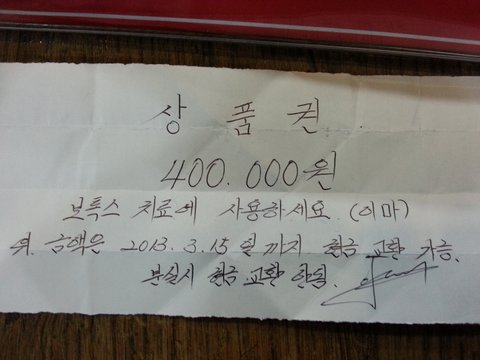 상 품 권
400.000원
보톡스 치료에 사용하세요. (이마)
위. 금액은 2013. 3.15일 까지 현금 교환 가능.
분실시 현금 교환 안됨.